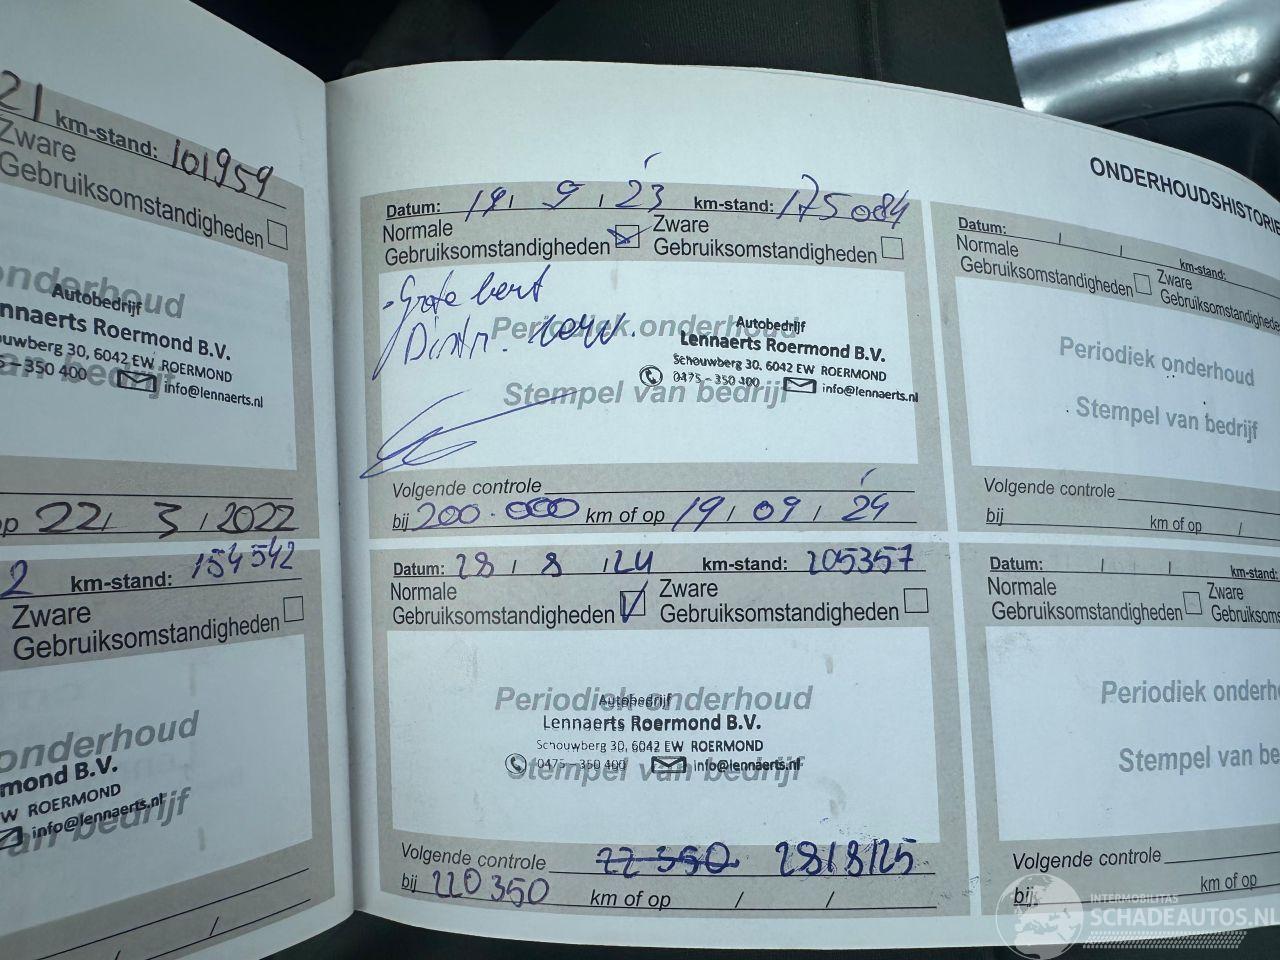 21 km-stand: 101959
Zware
Gebruiksomstandigheden
onderhoud
Autobedrijf
nnaerts Roermond B.V.
uwberg 30, 6042 EW ROERMOND
5 - 350 400 info@lennaerts.nl
an bedrijf
op 22 / 3 / 2022
2 km-stand: 154542
Zware
Gebruiksomstandigheden
onderhoud
mond B.V.
W ROERMOND
info@lennaerts.nl
an bedrijf
/ /
ONDERHOUDSHISTORIE
Datum: 19 / 9 / '23 km-stand: 175084
Normale
Gebruiksomstandigheden
Zware
Gebruiksomstandigheden
- Grote beurt
Distr. verv.
Periodiek onderhoud
Autobedrijf
Lennaerts Roermond B.V.
Schouwberg 30, 6042 EW ROERMOND
0475 - 350 400 info@lennaerts.nl
Stempel van bedrijf
Volgende controle
bij 200.000 km of op 19 / 09 / '24
Datum: 28 / 8 / 24 km-stand: 205357
Normale
Gebruiksomstandigheden
Zware
Gebruiksomstandigheden
Periodiek onderhoud
Autobedrijf
Lennaerts Roermond B.V.
Schouwberg 30, 6042 EW ROERMOND
0475 - 350 400 info@lennaerts.nl
Stempel van bedrijf
Volgende controle 22 350 28/8/25
bij 220350 km of op / /
Datum: / / km-stand:
Normale
Gebruiksomstandigheden
Zware
Gebruiksomstandighede
Periodiek onderhoud
Stempel van bedrijf
Volgende controle
bij km of op /
Datum: / / km-stand:
Normale
Gebruiksomstandigheden
Zware
Gebruiksoms
Periodiek onderh
Stempel van be
Volgende controle
bij km of op
INTERMOBILITAS
SCHADEAUTOS.NL